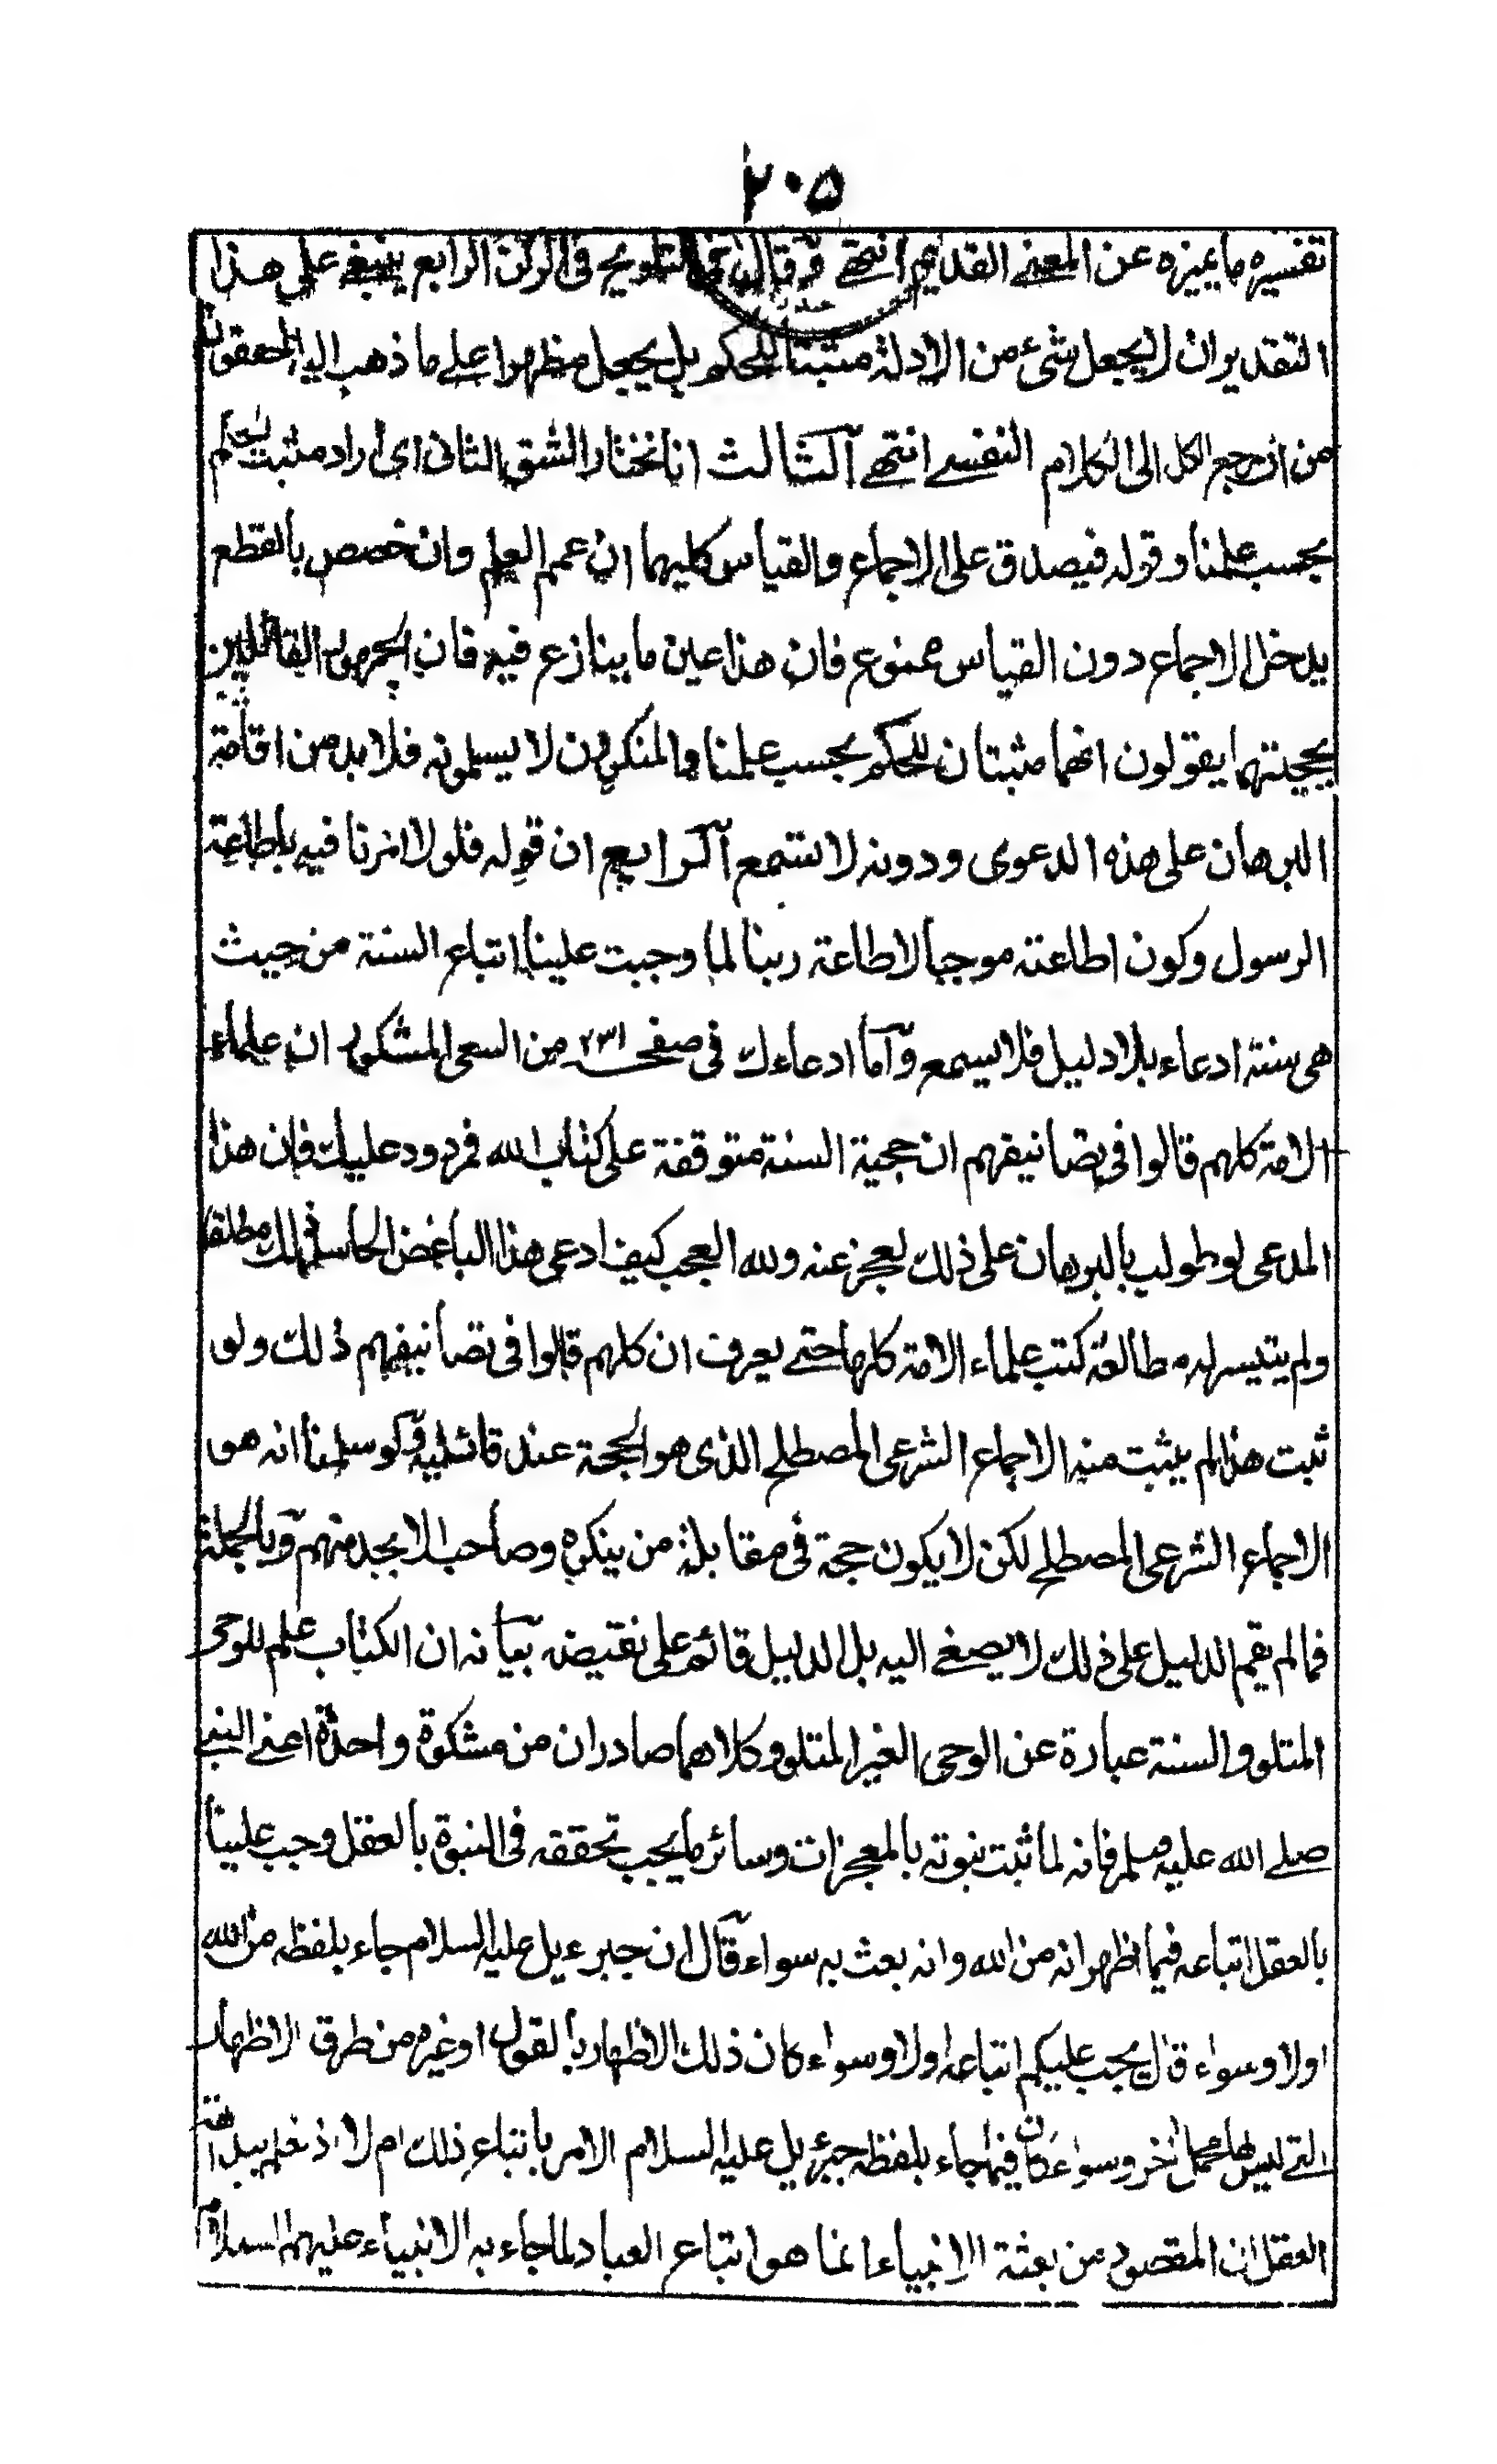 ٢٠٥
تفسيره ما يميزه عن المعنى القديم انتهى وقال في التلويح في الركن الرابع ينبغي على هذا
التقدير ان لا يجعل شئ من الادلة مثبتا للحكم بل يجعل مظهرا على ما ذهب اليه المحققون
من ان رجع الكل الى الكلام النفسي انتهى الثالث انا نختار الشق الثاني اى اراد مثبت لحكم
بحسب علمنا وقوله فيصدق على الاجماع والقياس كليهما ان عمم العلم وان خصص بالقطع
يدخل الاجماع دون القياس ممنوع فان هذا عين ما ينازع فيه فان الجمهور القائلين
بحجيتهما يقولون انهما مثبتان للحكم بحسب علمنا والمنكرون لا يسلمونه فلا بد من اقامة
البرهان على هذه الدعوى ودونه لا تسمع الرابع ان قوله فلولا امرنا فيه باطاعة
الرسول وكون اطاعته موجبا لاطاعة ربنا لما وجبت علينا اتباع السنة من حيث
هى سنة ادعاء بلا دليل فلا يسمع وآما ادعاءك في صفحـ ٢٣١ من السعى المشكور ان علماء
الامة كلهم قالوا في تصانيفهم ان حجية السنة متوقفة على كتاب الله فمردود عليك فان هذا
المدعى لو طولب بالبرهان على ذلك لعجز عنه ولله العجب كيف ادعى هذا الباغض الحاسد ذلك مطلقا
ولم يتيسر له مطالعة كتب علماء الامة كلها حتى يعرف ان كلهم قالوا في تصانيفهم ذلك ولو
ثبت هذا لم يثبت منه الاجماع الشرعى المصطلح الذى هو الحجة عند قائليه ولو سلمنا انه هو
الاجماع الشرعى المصطلح لكن لا يكون حجة في مقابلة من ينكره وصاحب الابجد منهم وبالجملة
فما لم يقم الدليل على ذلك لا يصغى اليه بل الدليل قائم على نقيضه بيانه ان الكتاب علم للوحى
المتلو والسنة عبارة عن الوحى الغير المتلو وكلاهما صادران من مشكوة واحدة اعنى النبى
صلى الله عليه وسلم فانه لما ثبت نبوته بالمعجزات وسائر ما يجب تحققه في النبوة بالعقل وجب علينا
بالعقل اتباعه فيما اظهر انه من الله وانه بعث به سواء قال ان جبرءيل عليه السلام جاء بلفظه من الله
اولا وسواء قال يجب عليكم اتباعه اولا وسواء كان ذلك الاظهار بالقول او غيره من طرق الاظهار
التى ليس لها محمل اخر وسواء كان فيما جاء بلفظه جبرئيل عليه السلام الامر باتباع ذلك ام لا اذ نعلم ببداهة
العقل ان المقصود من بعثة الانبياء انما هو اتباع العباد لما جاء به الانبياء عليهم السلام